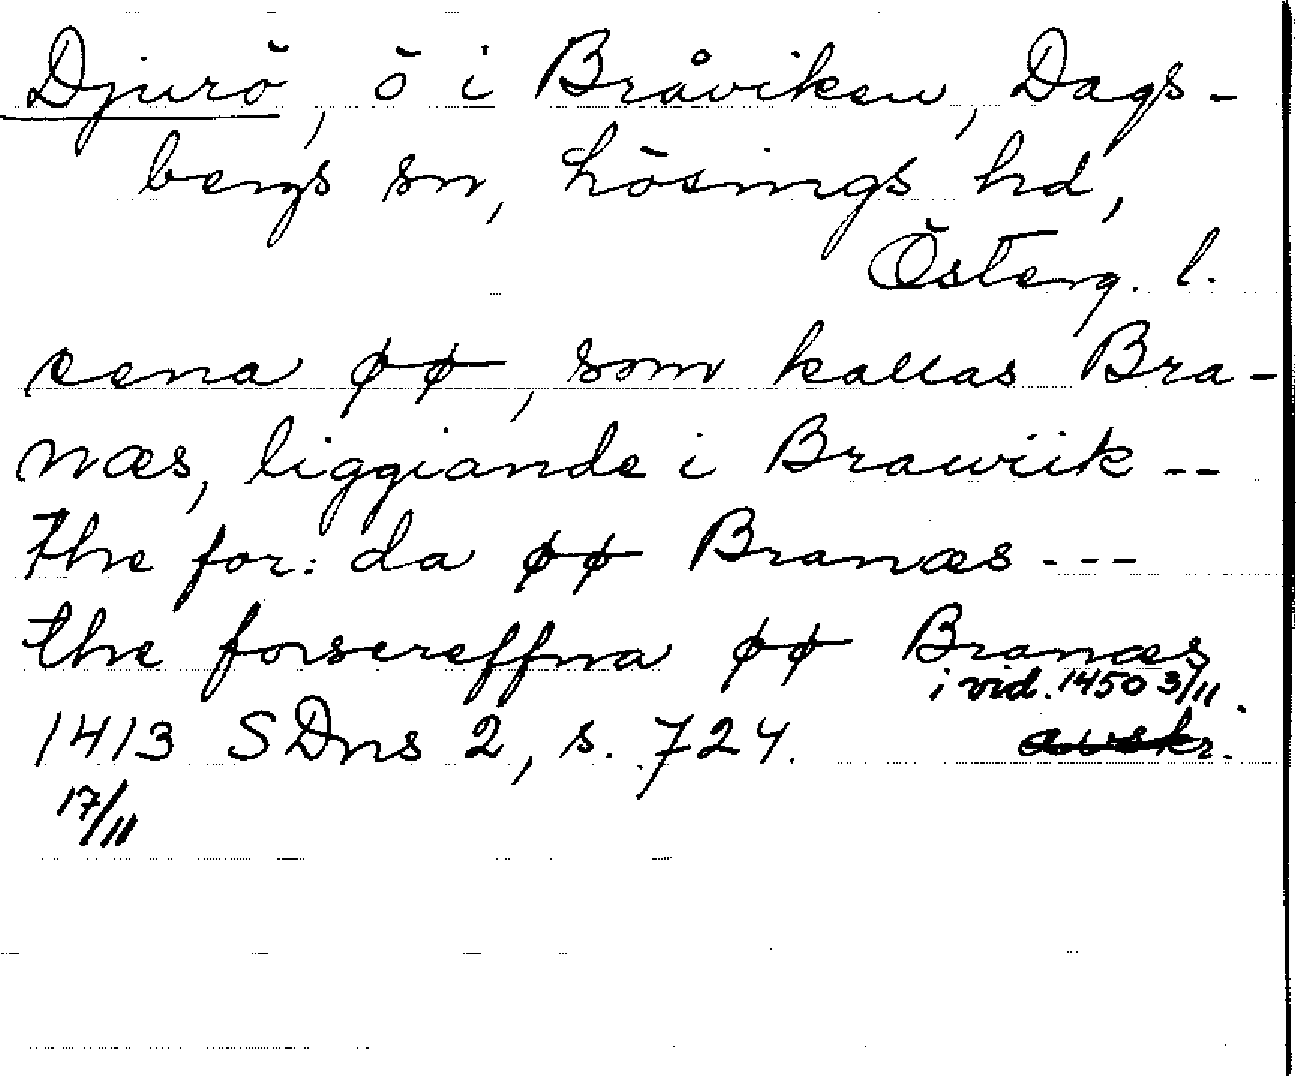 Djurö, ö i Bråviken, Dags-
bergs sn, Lösings hd,
Österg. l.
eena øø, som kallas Bra-
næs, liggiande i Brawiik --
the for:da øø Branæs ---
the forscreffna øø Branæs
i vid. 1450 3/11.
1413 SDns 2, s. 724. avskr.
17/11